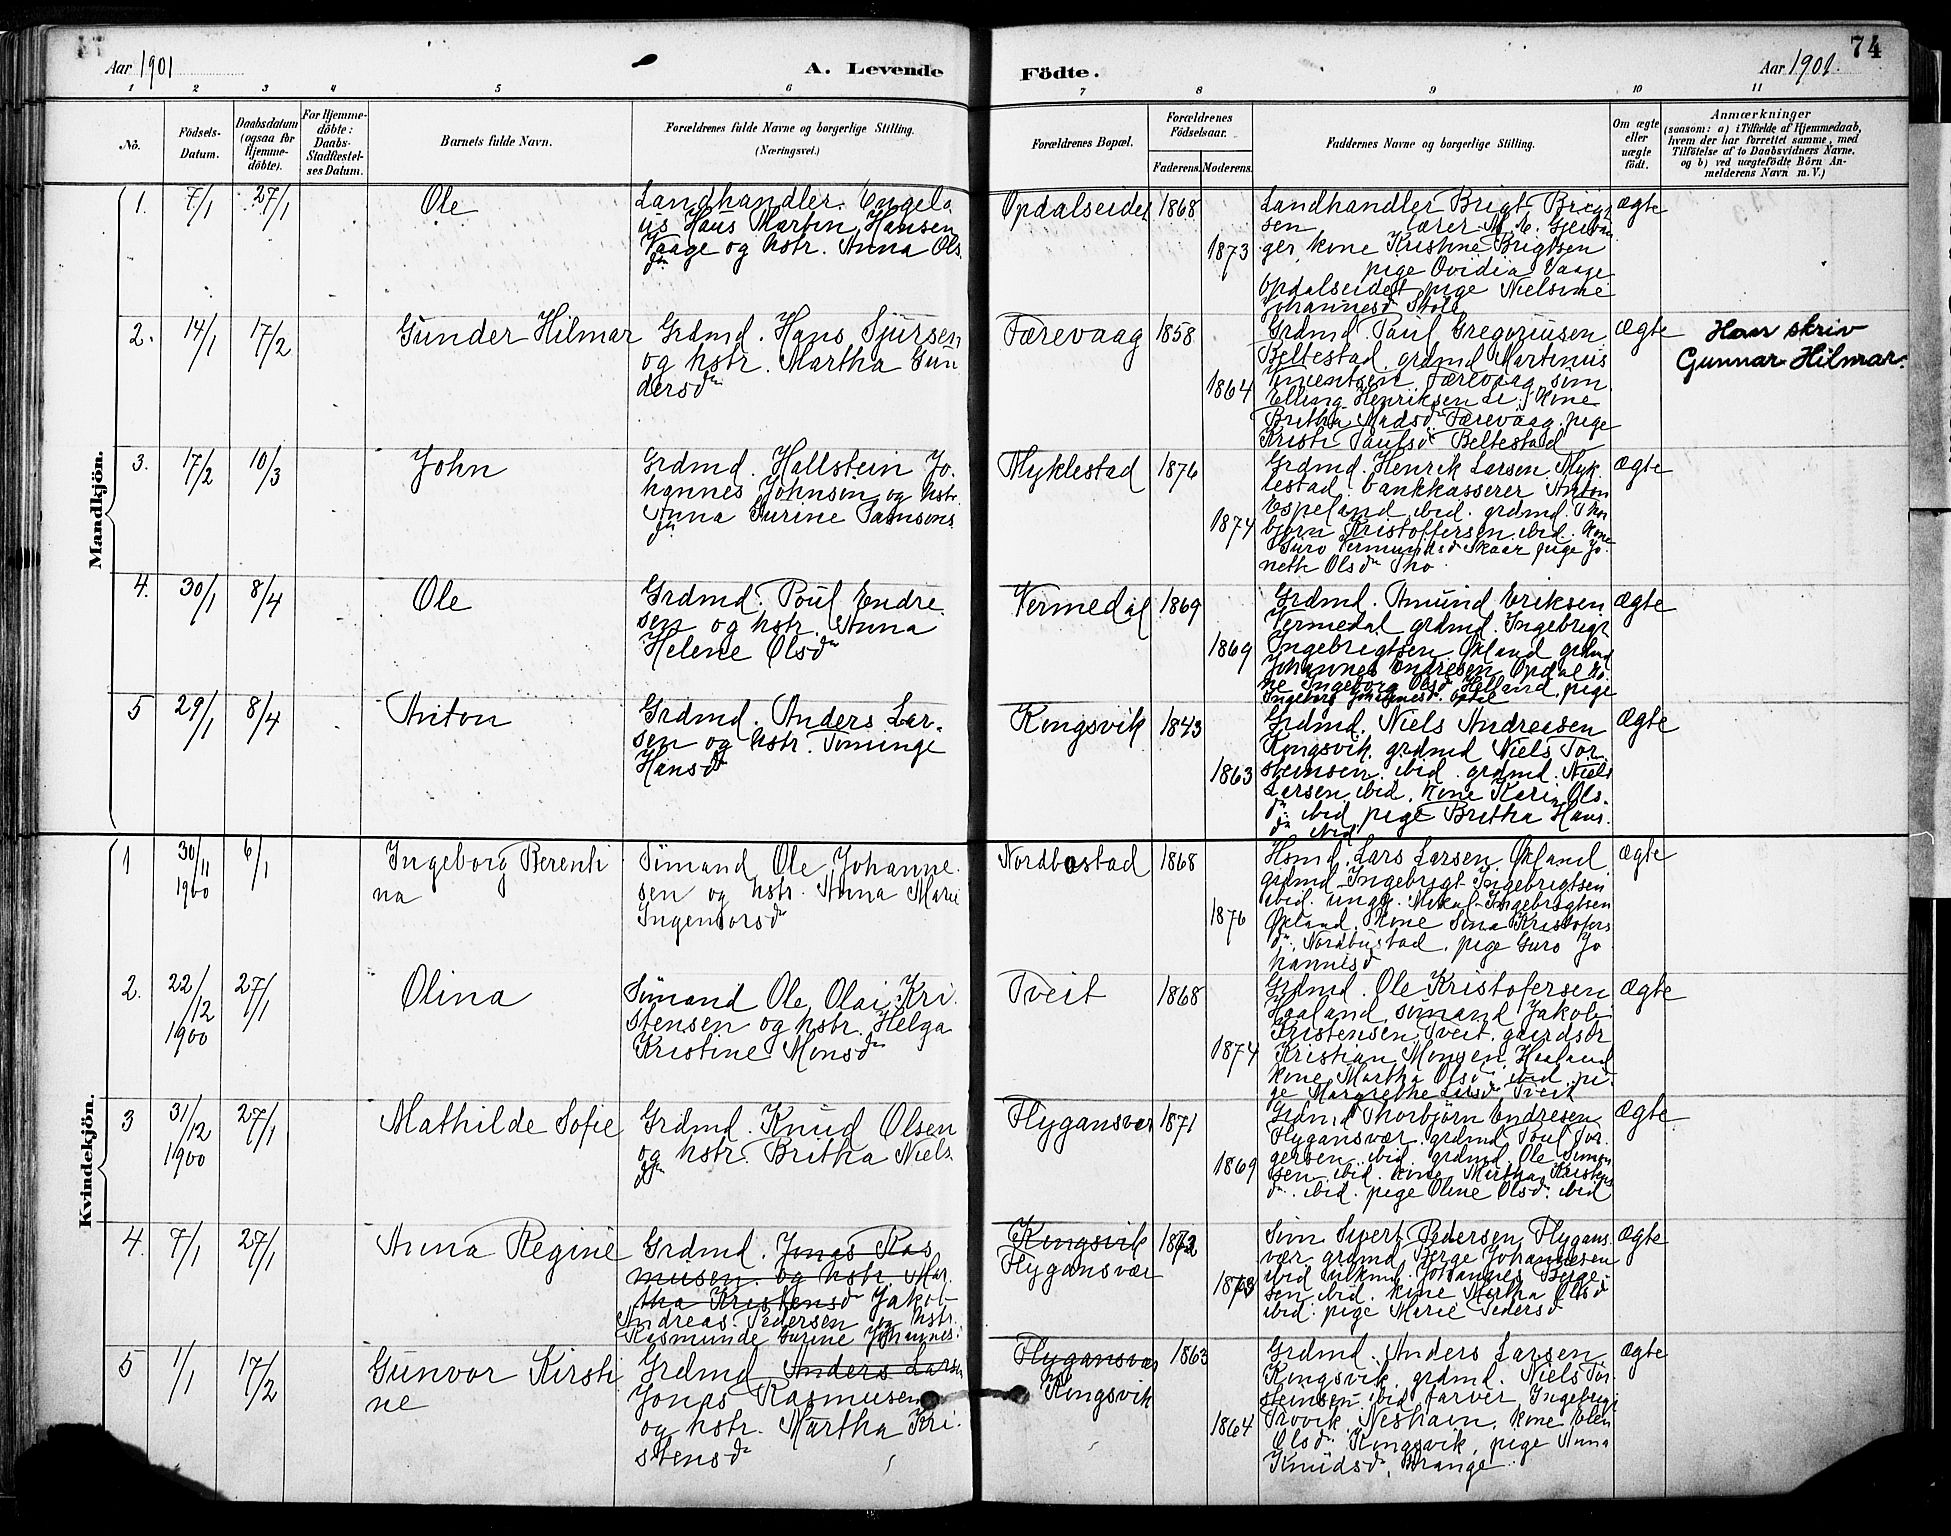 Aar 1901
A. Levende
Födte.
Aar 1901.
74
1 2 3 4 5 6 7 8 9 10 11
No.
Födsels-
Datum.
Daabsdatum
(ogsaa för
Hjemme-
döbte).
For Hjemme-
döbte:
Daabs-
Stadfæstel-
ses Datum.
Barnets fulde Navn.
Forældrenes fulde Navne og borgerlige Stilling.
(Næringsvei.)
Forældrenes Bopæl.
Forældrenes
Födselsaar.
Faderens.
Moderens.
Faddernes Navne og borgerlige Stilling.
Om ægte
eller
uægte
födt.
Anmærkninger
(saasom: a) i Tilfælde af Hjemmedaab,
hvem der har forrettet samme, med
Tilföielse af to Daabsvidners Navne,
og b) ved uægtefödte Börn An-
melderens Navn m. V.)
Mandkjön.
1. 7/1 27/1
Ole
Landhandler Engela
us Hans Martin Hansen
Vaage og hstr. Anna Ols
dn
Opdalseidet
1868
1873
Landhandler Brigt Brigt
sen lærer
ger, kone Kristine Brigtsen
pige Ovidia Vaage
Opdalseidet pige Nielsine
Johannesd
Ægte
2. 14/1 17/2
Gunder Hilmar
Grdmd. Hans Sjursen
og hstr. Martha Gun
dersdn
Færevaag
1858
1864
Grdmd. Paul Gregoriusen
Beltestad grdmd Martinus
Færevaag, söm.
Elling Henriksen kone
Britha Madsdn Færevaag pige
Kristi Paulsdn Beltestad
Ægte
Han skriv
Gunnar Hilmar.
3. 17/2 10/3
John
Grdmd. Hallstein Jo.
hannes Johnsen og hstr
Anna Surine Samsons
dn
Myklestad
1876
1874
Grdmd. Henrik Larsen Myk
lestad. bankkasserer Anton
Espeland ibid. grdmd Thor
björn Kristoffersen ibid. kone
Guro Vermundsd Skaar pige Jo
nette Olsdn Tho
Ægte
4. 30/1 8/4
Ole
Grdmd. Poul Endre
sen og hstr. Anna
Helene Olsdn
Vermedal
1869
1869
Grdmd. Amund Eriksen
Vermedal grdmd. Ingebrigt
Ingebrigtsen Økland grdmd
Johannes Endresen Opdal ko
ne Ingeborg Olsd Helland, pige
Ingeborg Johannesd. Opdal
Ægte
5 29/1 8/4
Anton
Grdmd. Anders Lar-
sen og hstr. Tominge
Hansdn
Kongsvik
1843
1863
Grdmd. Niels Andreasen
Kongsvik, grdmd Niels Tor
steinsen. ibid. grdmd. Niels
Larsen ibid. kone Kari Ols.
dn. ibid pige Britha Hans.
dn ibid
Ægte
Kvindekjön.
1 30/11 1900 6/1
Ingeborg Berenti
na
Sömand Ole Johanne
sen og hstr. Anna Marie
Ingemorsdn
Nordbostad
1868
1876
Hsmd. Lars Larsen Økland
grdmd Ingebrigt Ingebrigtsen
ibid. ungk. Mikal Ingebrigtsen
Økland, kone Sina Kristofers
dn. Nordbustad, pige Guro Jo
hannesd
Ægte
2. 22/12 1900 27/1
Olina
Sömand Ole Olai Kri
stensen og hstr. Helga
Kristine Monsdn
Tveit
1868
1874
Grdmd. Ole Kristofersen
Haaland sömand Jakob
Kristensen Tveit. gaardsbr
Kristian Monsen Haaland
kone Martha Olsd. ibid pi
ge Margrethe Larsd. Tveit
Ægte
3 31/12 1900 27/1
Mathilde Sofie
Grdmd. Knud Olsen
og hstr. Britha Niels
dn
Flygansvær
1871
1869
Grdmd Thorbjörn Endresen
Flygansvær. grdmd Poul Tor.
gersen ibid grdmd Ole Simon
sen ibid. kone Martha Kristens
dn. ibid. pige Oline Olsdn. ibid
Ægte
4. 7/1 27/1
Anna Regine
Grdmd. Jonas Ras
musen. og hstr. Mar.
tha Kristensd Jakob
Andreas Pedersen og hstr.
Rasmunde Gurine Johannes:
Kongsvik
Flygansvær
1872
1873
Söm Sivert Pedersen Flygans
vær grdmd Berge Johannesen
ibid Johannes Berge:
sen ibid. kone Martha Olsd
ibid. pige Marie Pedersd
Ægte
5 1/1 17/2
Gunvor Kirsti
ne
Grdmd Anders Larsen
Jonas Rasmusen
og hstr. Martha Kri.
stensdn
Flygansvær
Kongsvik
1863
1864
Grdmd. Anders Larsen
Kongsvik, grdmd. Niels Tor
steinsen ibid farver Ingebrigt
Trovik Neshavn, kone Elen
Olsdn. Kongsvik, pige Anna
Knudsd, Vrange
Ægte